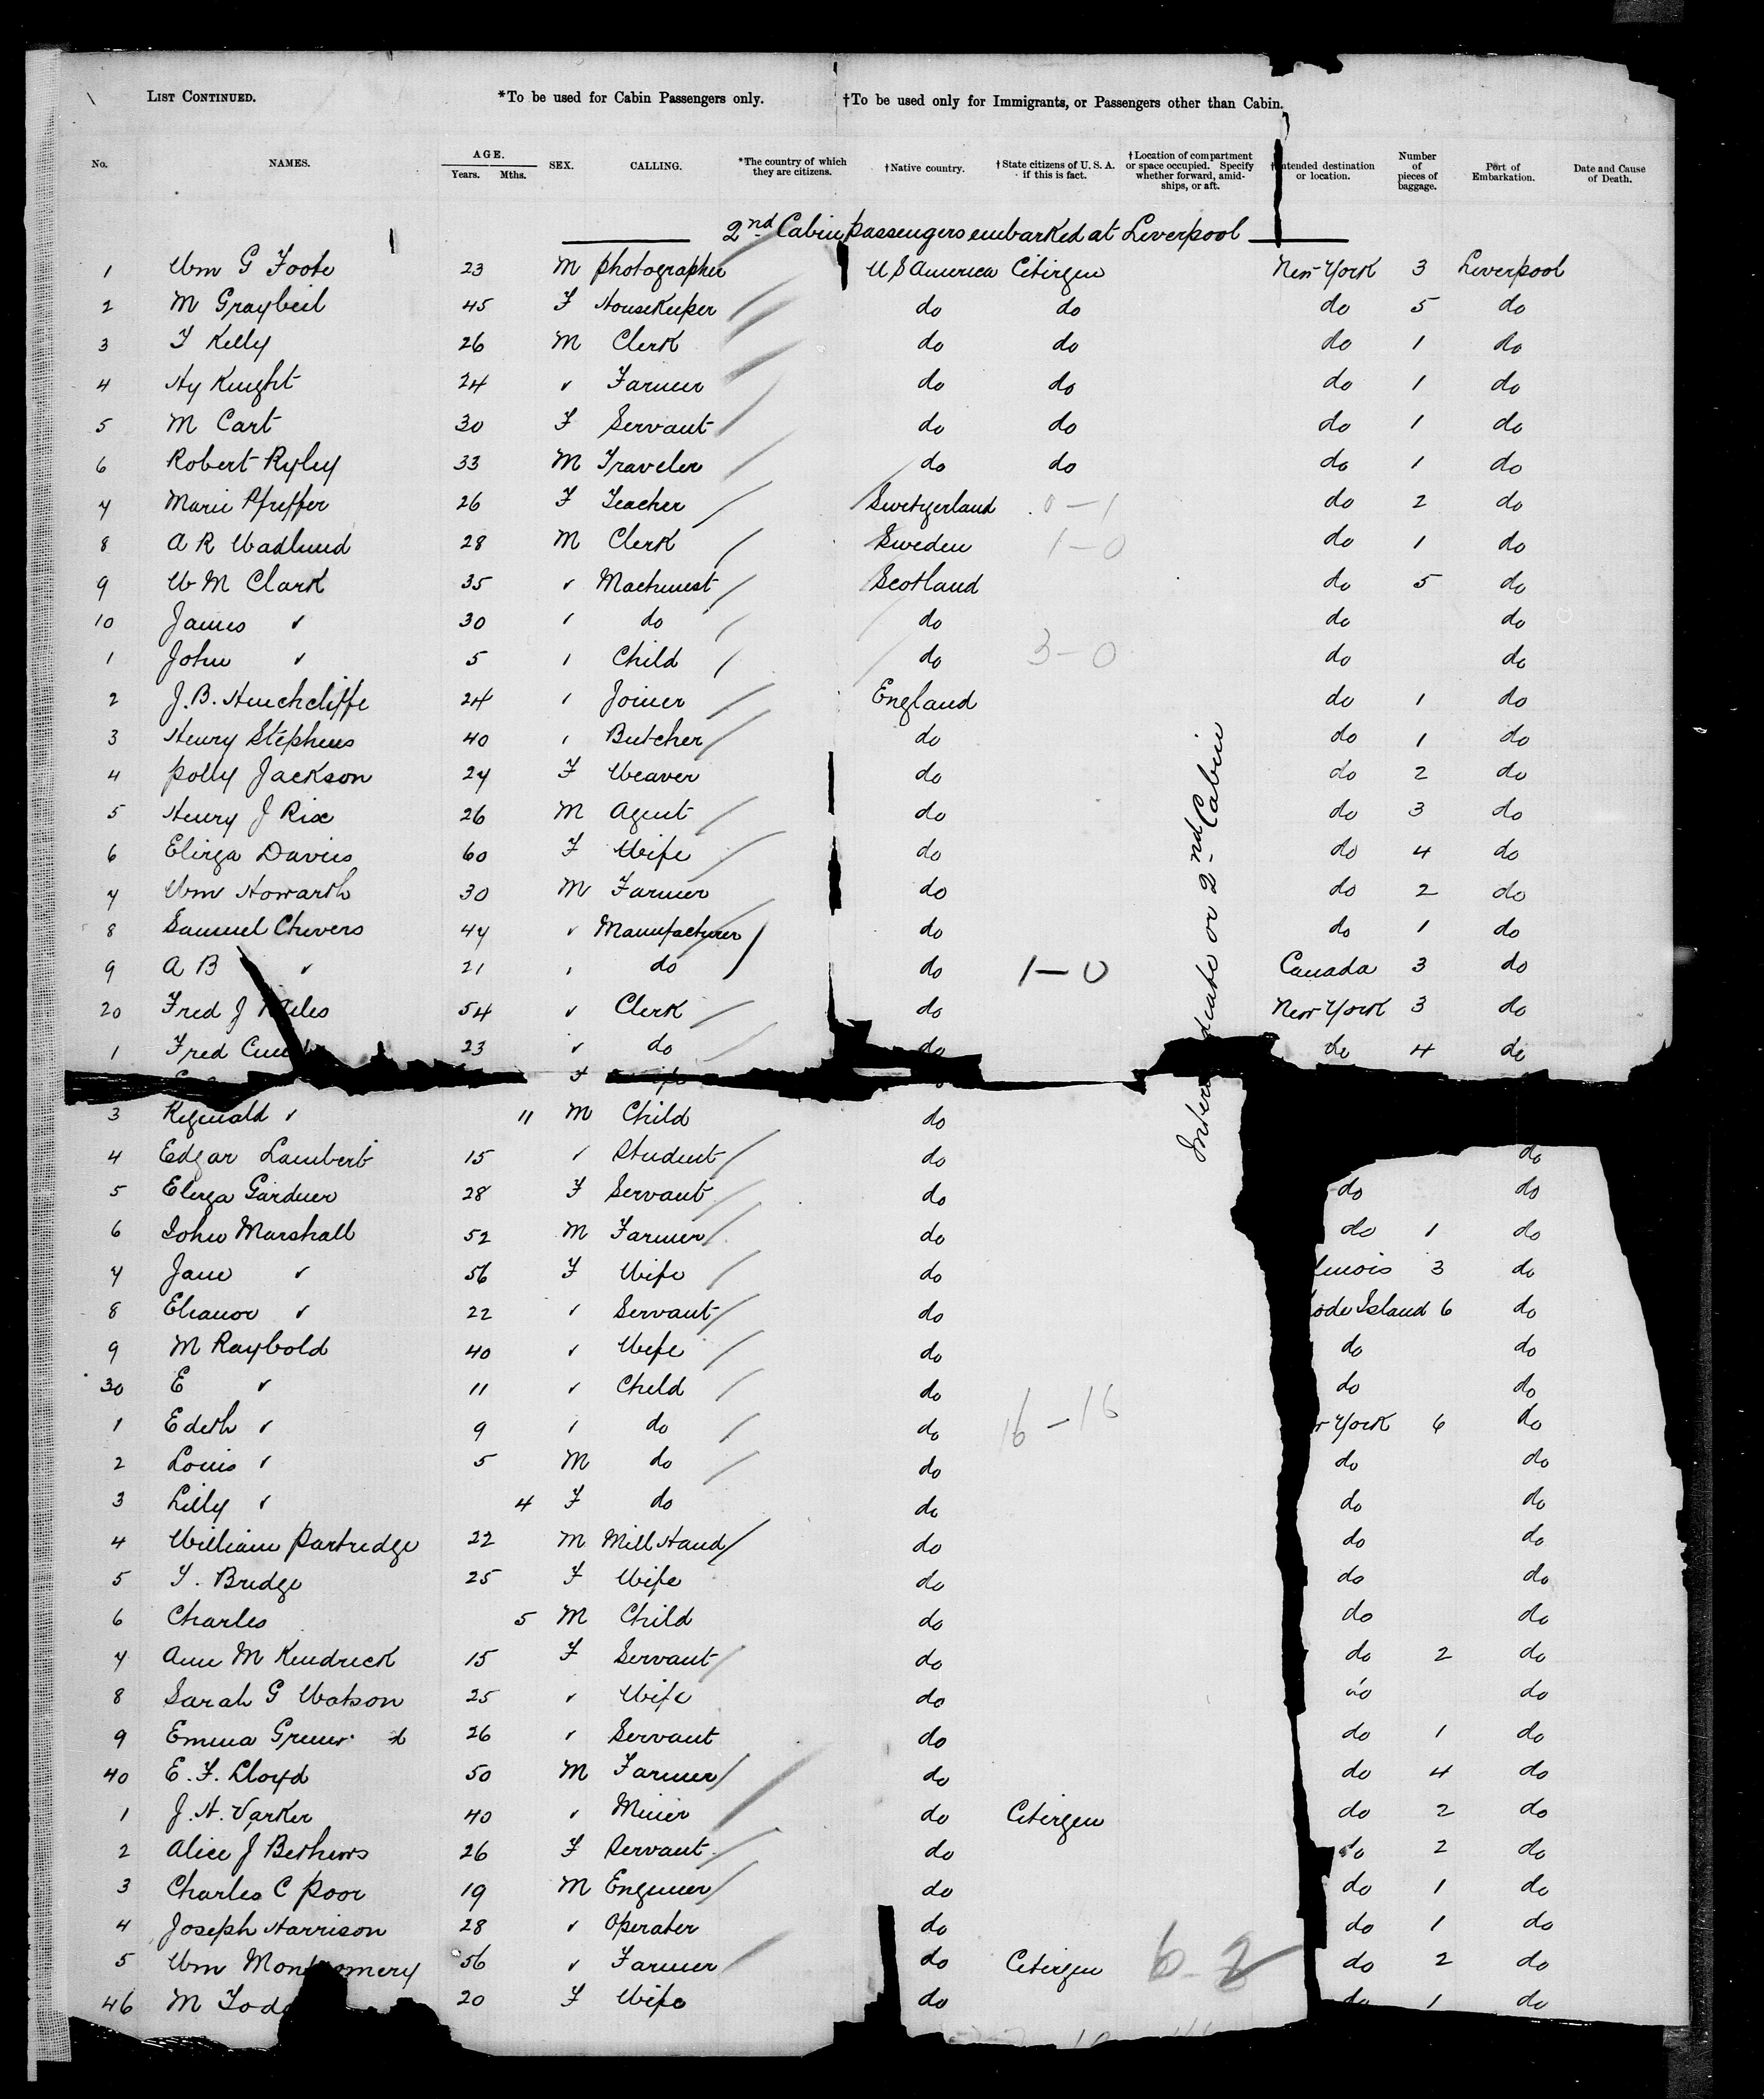 LIST CONTINUED. *To be used for Cabin Passengers only. †To be used only for Immigrants, or Passengers other than Cabin.
No. NAMES. AGE. Years. Mths. SEX. CALLING. *The country of which they are citizens. †Native country. †State citizens of U. S. A. if this is fact. †Location of compartment or space occupied. Specify whether forward, amidships, or aft. ntended destination or location. Number of pieces of baggage. Port of Embarkation. Date and Cause of Death.
2nd Cabin passengers embarked at Liverpool
1 Wm G Foote 23 M photographer U S America Citizen New York 3 Liverpool
2 M Graybeil 45 F Housekeeper do do do 5 do
3 F Kelly 26 M Clerk do do do 1 do
4 Hy Knight 24 " Farmer do do do 1 do
5 M Cart 30 F Servant do do do 1 do
6 Robert Ryley 33 M Traveler do do do 1 do
7 Marie Pfeffer 26 F Teacher Switzerland 0-1 do 2 do
8 A R Wadlund 28 M Clerk Sweden 1-0 do 1 do
9 W M Clark 35 " Machinist Scotland do 5 do
10 James " 30 " do do do do
1 John " 5 " Child do 3-0 do do
2 J. B. Hinchcliffe 24 " Joiner England do 1 do
3 Henry Stephens 40 " Butcher do do 1 do
4 Polly Jackson 27 F Weaver do do 2 do
5 Henry J Rix 26 M Agent do do 3 do
6 Eliza Davies 60 F Wife do do 4 do
7 Wm Howarth 30 M Farmer do do 2 do
8 Samuel Chivers 47 " Manufacturer do do 1 do
9 A B " 21 " do do 1-0 Canada 3 do
20 Fred J iles 54 " Clerk do New York 3 do
1 Fred 23 " do do do 4 do
F
3 Reginald " 11 M Child do
4 Edgar Lambert 15 " Student do do
5 Eliza Gardner 28 F Servant do do do
6 John Marshall 52 M Farmer do do 1 do
7 Jane " 56 F Wife do linois 3 do
8 Eleanor " 22 " Servant do ode Island 6 do
9 M Raybold 40 " Wife do do do
30 E " 11 " Child do do do
1 Edith " 9 " do do 16-16 York 6 do
2 Louis " 5 M do do do do
3 Lilly " 4 F do do do do
4 William Partridge 22 M Mill Hand do do do
5 T. Bridge 25 F Wife do do do
6 Charles 5 M Child do do do
7 Ann M Kendrick 15 F Servant do do 2 do
8 Sarah G Watson 25 " Wife do do do
9 Emma 26 " Servant do do 1 do
40 E. F. Lloyd 50 M Farmer do do 4 do
1 J. H. Varker 40 " Miner do Citizen do 2 do
2 Alice J Bethews 26 F Servant do do 2 do
3 Charles C Poor 19 M Engineer do do 1 do
4 Joseph Harrison 28 " Operater do do 1 do
5 Wm Montgomery 56 " Farmer do Citizen 6-2 do 2 do
46 M Tod 20 F Wife do do 1 do
Intermediate or 2nd Cabin